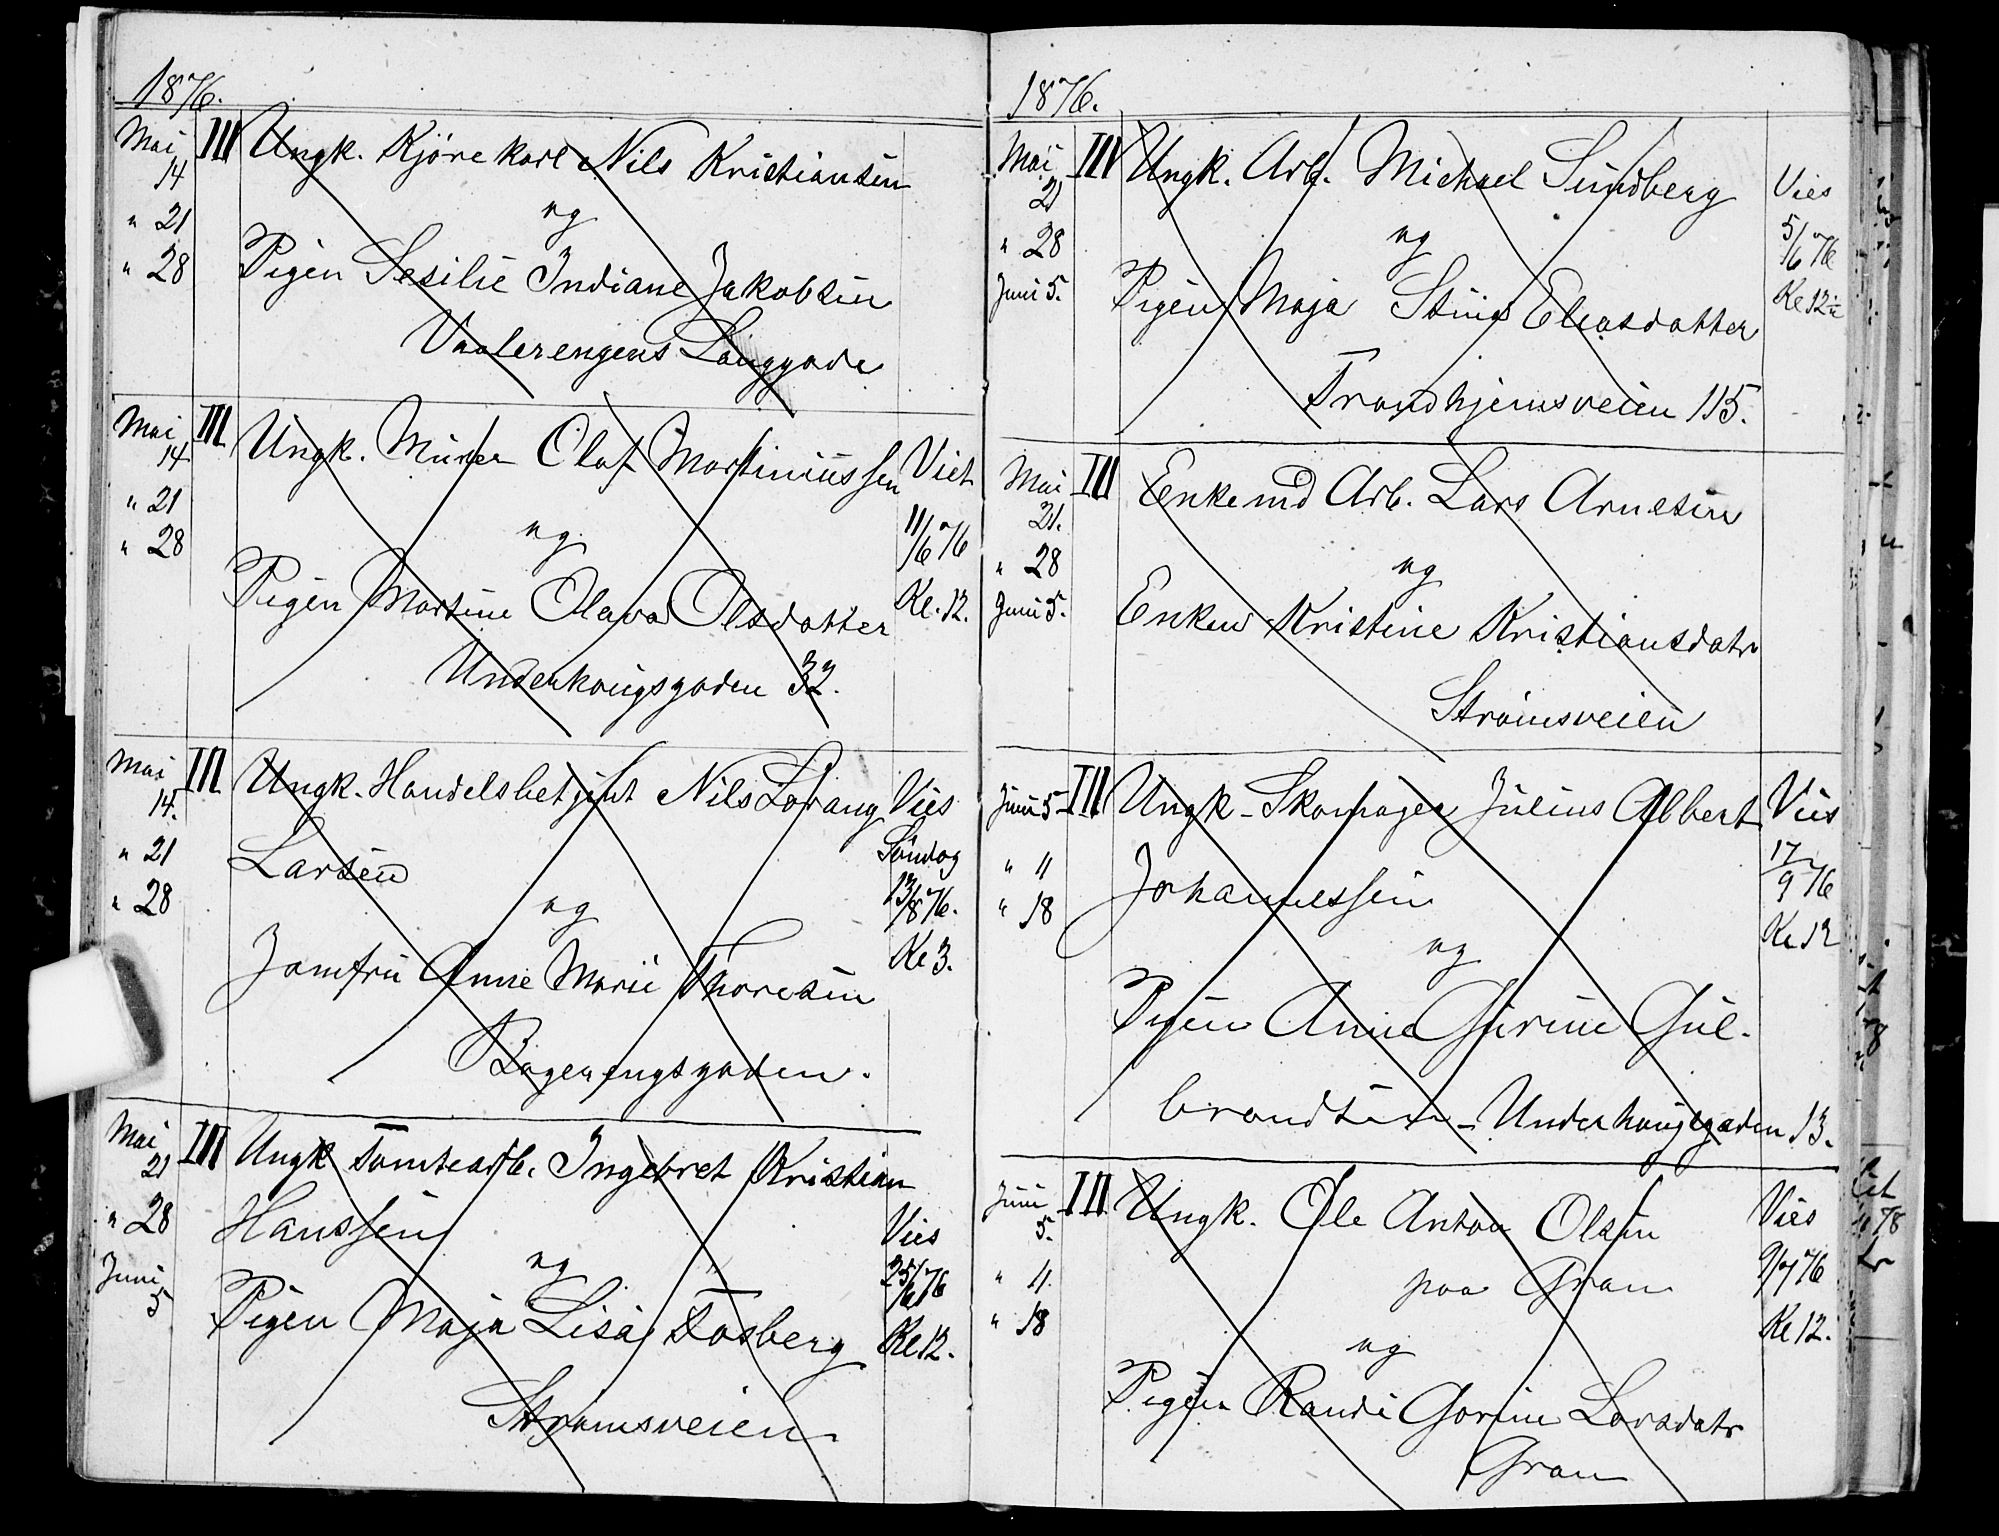 1876.
Mai 14 III Ungk. Kjörekarl Nils Kristiansen
" 21 og
" 28 Pigen Sesilie Indiane Jakobsen
Vaalerengens Langgade
Mai 14 III Ungk. Murer Olaf Martiniussen Viet
" 21 og 11/6 76
" 28 Pigen Martine Olava Olsdatter Kl. 12.
Underhougsgaden 32.
Mai 14. III Ungk. Handelsbetjent Nils Lorang Vies
" 21 Larsen Söndag
" 28 og 13/8 76.
Jomfru Anne Marie Thoresen Kl 3.
Bogerengsgaden.
Mai 21 III Ungk Tomtearb. Ingebret Kristian
" 28 Hanssen Vies
Juni 5 og 25/6 76
Pigen Maja Lisa Fosberg Kl 12.
Strömsveien
1876.
Mai 21 III Ungk. Arb. Michael Sundberg Vies
" 28 og 5/6 76
Juni 5. Pigen Maja Stina Eliasdatter Kl 12
Trondhjemsveien 115.
Mai 21. III Enkemd Arb. Lars Arnesen
" 28 og
Juni 5. Enken Kristine Kristiansdatr
Strömsveien
Juni 5 III Ungk. Skomager Julius Albert Vies
" 11 Johannessen 17/9 76
" 18 og Kl 12
Pigen Anne Gurine Gul-
brandsen - Underhougsgaden 13.
Juni 5. III Ungk. Ole Anton Olsen Vies
" 11. paa Gran 9/7 76
" 18 og Kl 12.
Pigen Randi Gorine Larsdatr
Gran